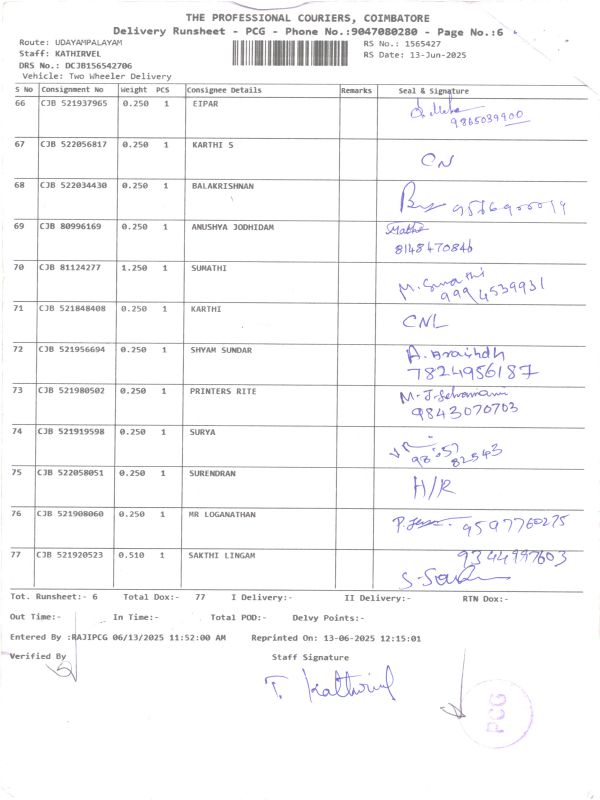 THE PROFESSIONAL COURIERS, COIMBATORE
Delivery Runsheet - PCG - Phone No.:9047080280 - Page No.:6
Route: UDAYAMPALAYAM
RS No.: 1565427
Staff: KATHIRVEL
RS Date: 13-Jun-2025
DRS No.: DCJB156542706
Vehicle: Two Wheeler Delivery
S No Consignment No Weight PCS Consignee Details Remarks Seal & Signature
66 CJB 521937965 0.250 1 EIPAR
9865039900
67 CJB 522056817 0.250 1 KARTHI S CN
68 CJB 522034430 0.250 1 BALAKRISHNAN
69 CJB 80996169 0.250 1 ANUSHYA JODHIDAM
8148470846
70 CJB 81124277 1.250 1 SUMATHI
9994539931
71 CJB 521848408 0.250 1 KARTHI CNL
72 CJB 521956694 0.250 1 SHYAM SUNDAR
7824956187
73 CJB 521980502 0.250 1 PRINTERS RITE
9843070703
74 CJB 521919598 0.250 1 SURYA
82543
75 CJB 522058051 0.250 1 SURENDRAN H/R
76 CJB 521908060 0.250 1 MR LOGANATHAN 9597760275
77 CJB 521920523 0.510 1 SAKTHI LINGAM 9344997603
Tot. Runsheet:- 6 Total Dox:- 77 I Delivery:- II Delivery:- RTN Dox:-
Out Time:- In Time:- Total POD:- Delvy Points:-
Entered By :RAJIPCG 06/13/2025 11:52:00 AM Reprinted On: 13-06-2025 12:15:01
Verified By Staff Signature
T. Kathirvel
PCG